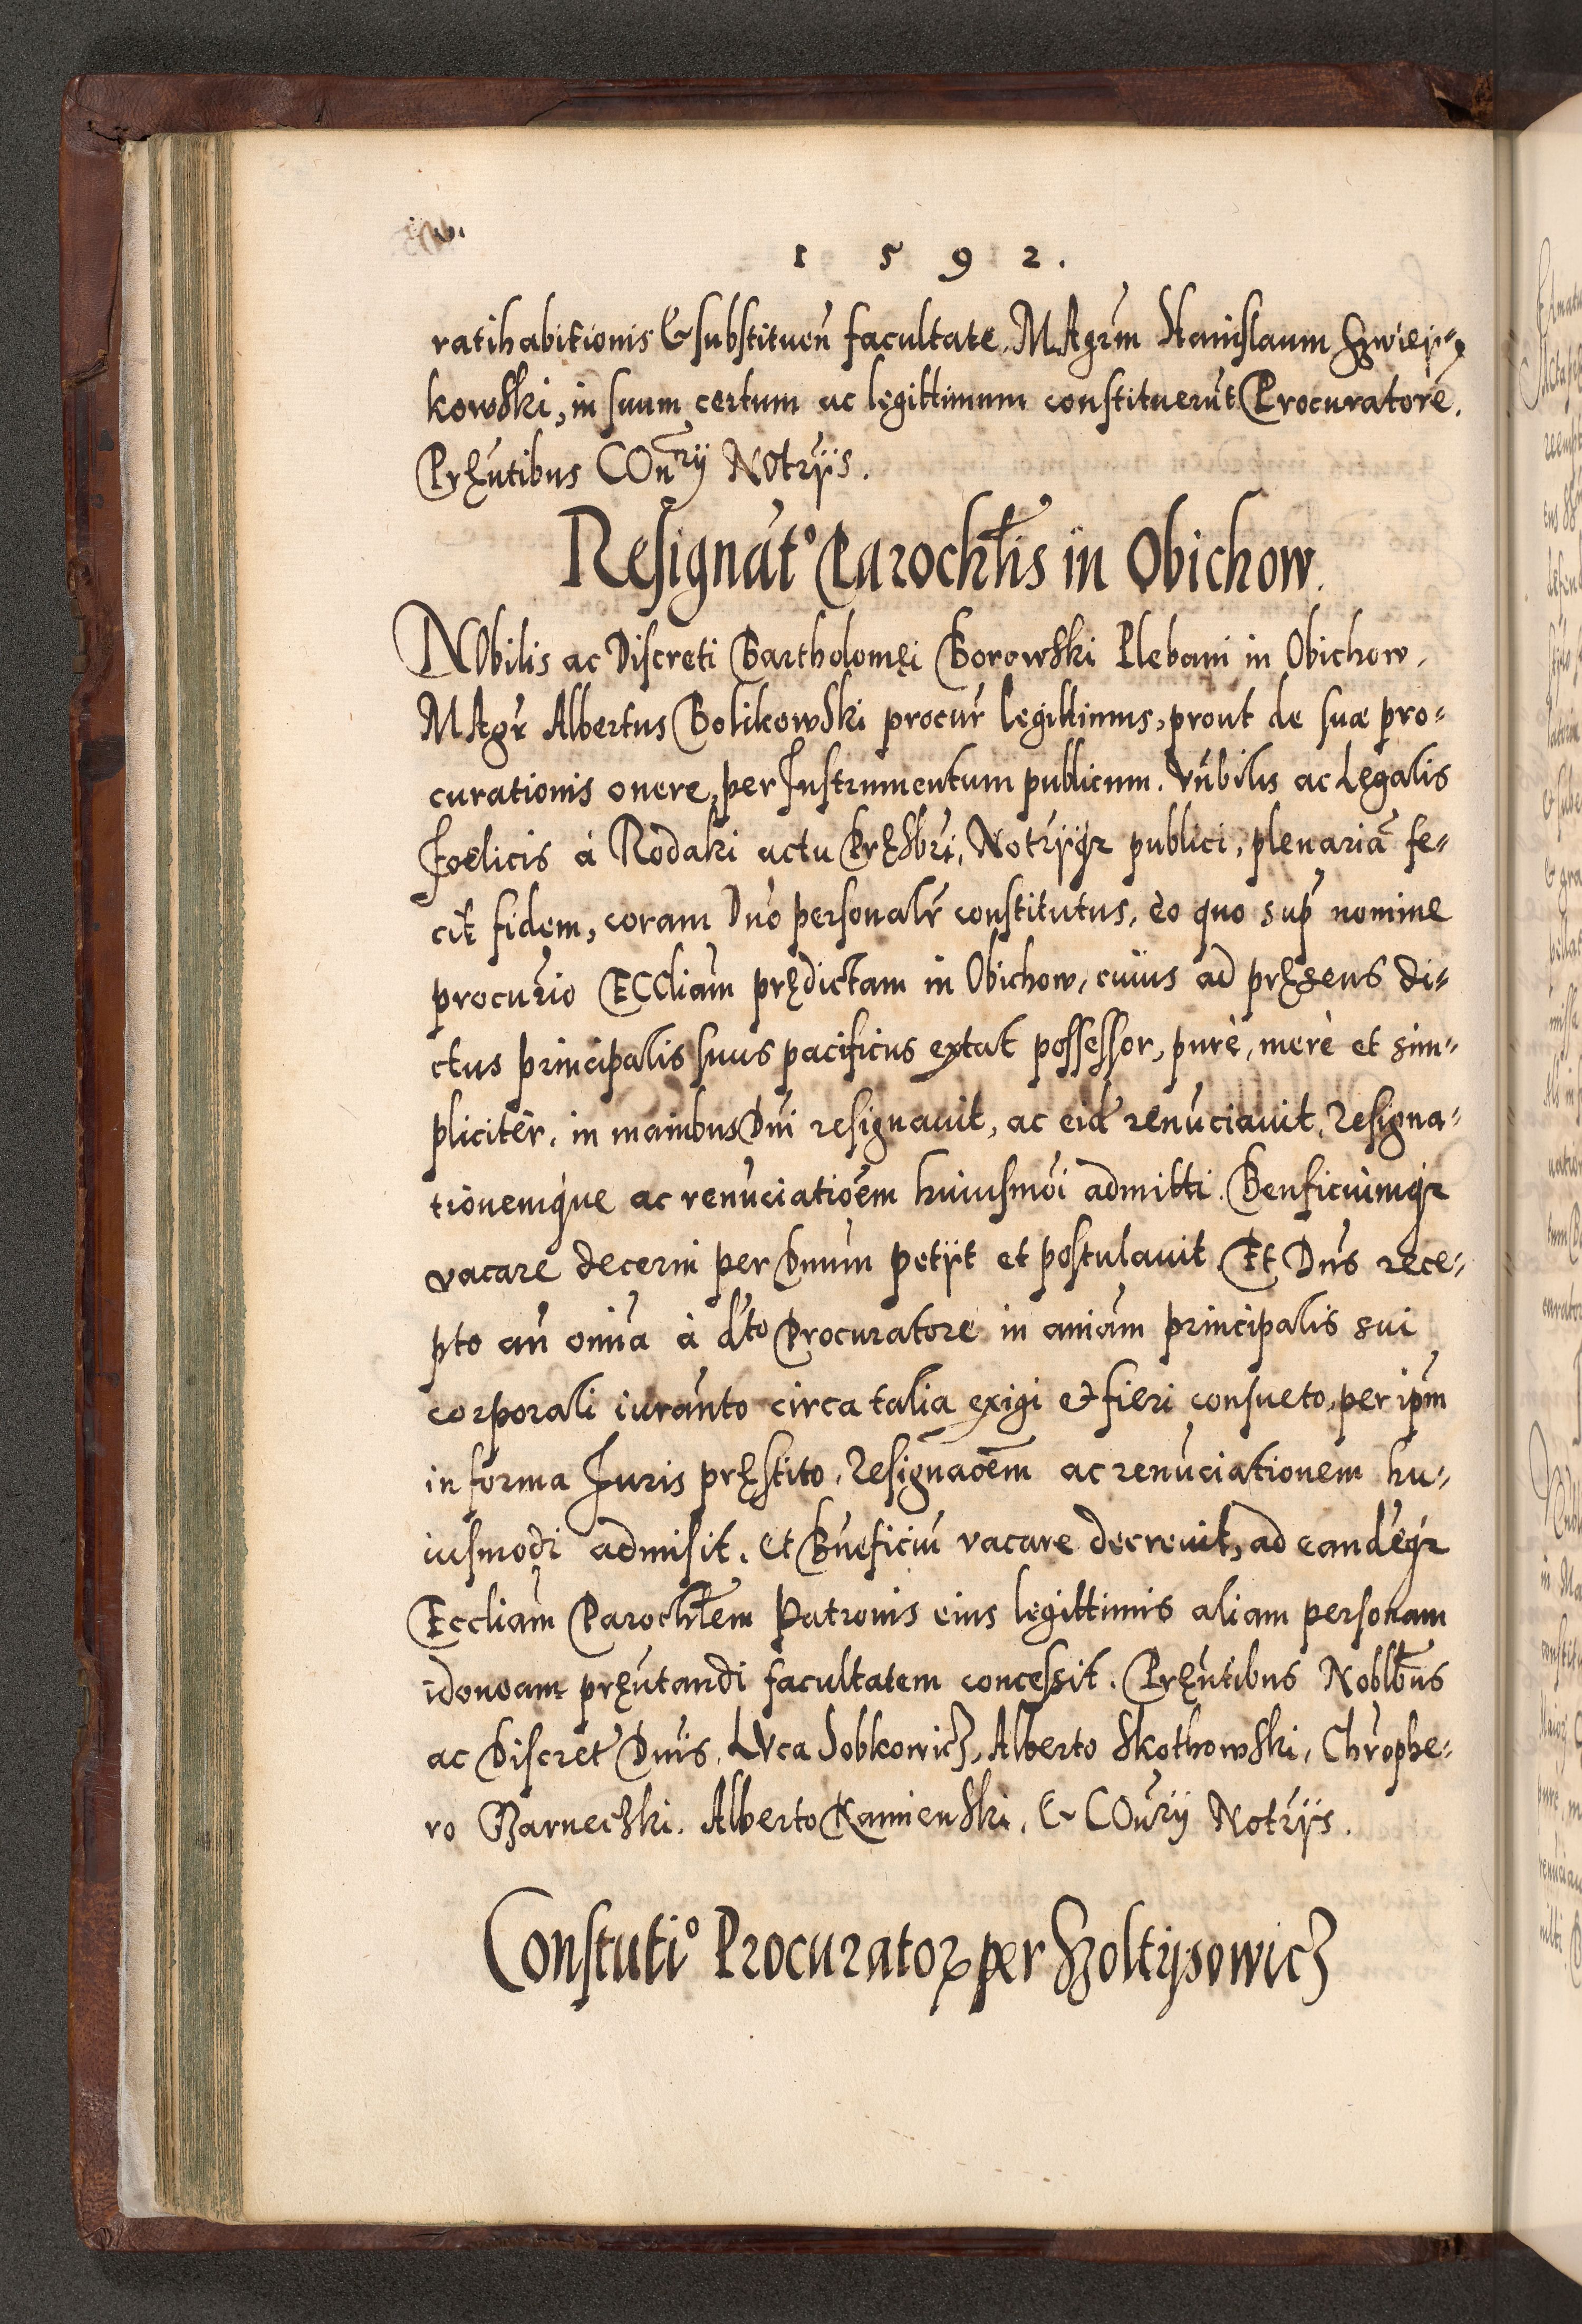 1 5 9 2.
ratihabitionis & substituen̄ facultate, MAgr̄m Stanislaum
kowski, in suum certum ac legittimum constituerūt Procuratorē.
Pręn̄tibus COn̄rÿ NOtrÿs.
Resignat° Parochl̄is in Obichow.
NObilis ac Discreti Bartholomęi Borowski Plebani in Obichow,
MAgr̄ Albertus Bolikowski procur̄ legittimus, prout de suæ pro=
curationis onere, per Instrumentum publicum. Vn̄bilis ac Legalis
Foelicis à Rodaki actu Pręsbr̄i, Notrÿqʒ publici, plenariā fe=
cit fidem, coram Dn̄o personalr̄ constitutus, eo quo sup̄ nomine
procur̄io ECCliam̄ prędictam in Obichow, cuius ad pręsens di=
ctus principalis suus pacificus extat possessor, purè, merè et sim=
plicitèr, in manibus Dn̄i resignauit, ac eid̄ renūciauit, Resigna=
tionemq́ue ac renūciatiōem huiusmōi admitti. Benficiūmqʒ
vacare decerni per Dnūm petÿt et postulauit. Et Dn̄s rece=
pto an̄ omn̄a à d̄to Procuratore in aniam̄ principalis sui
corporali iuran̄to circa talia exigi et fieri consueto, per ipm̄
in forma Juris pręstito, Resignaōem̄ ac renūciationem hu=
iusmodi admisit, et Bn̄eficiū vacare decreuit, ad eand̄eqʒ
Eccliam̄ Parochl̄em Patronis eius legittimis aliam personam
idoneam pręn̄tandi facultatem concessit. Pręn̄tibus Noblb̄us
ac Discret̄ Dn̄is, LVca Sobkowicz, Alberto Skothowski, Chr̄ophe=
ro Barneczki. Alberto Kamienski, & COn̄rÿ Notrÿs.
Constuti° Procurator per Szoltÿsowicz